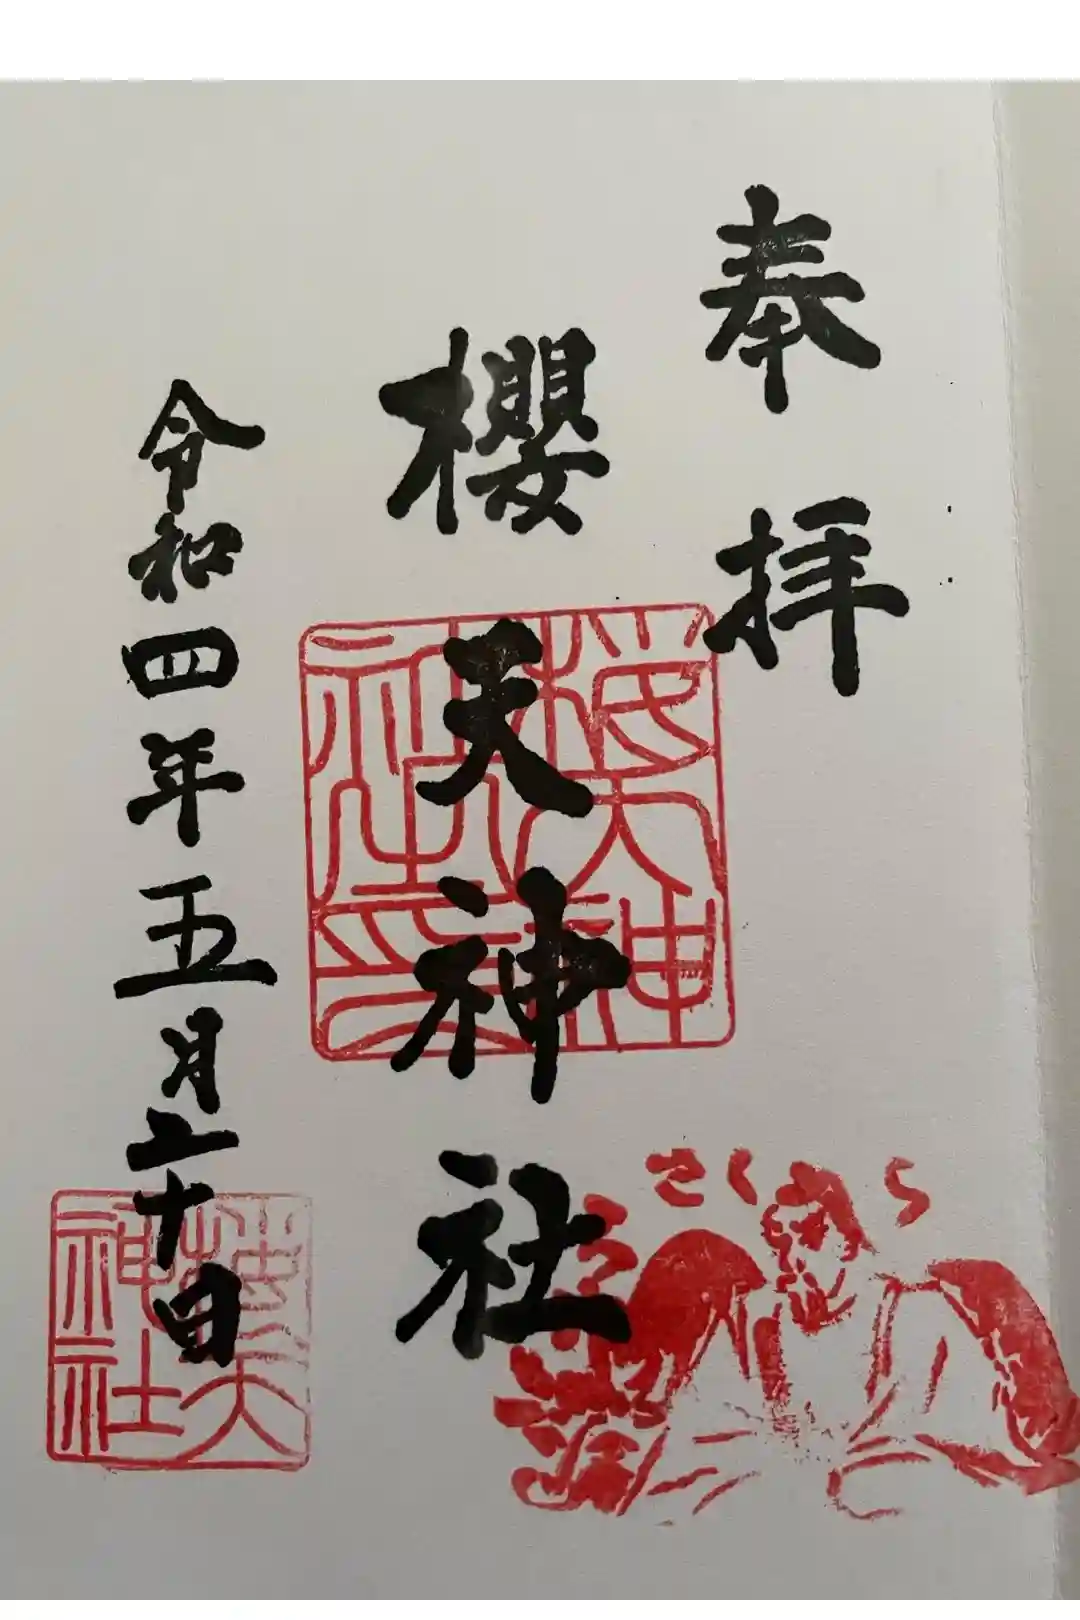 奉拝
櫻天神社
令和四年五月二十日
櫻天神社印
さくら
櫻天神社